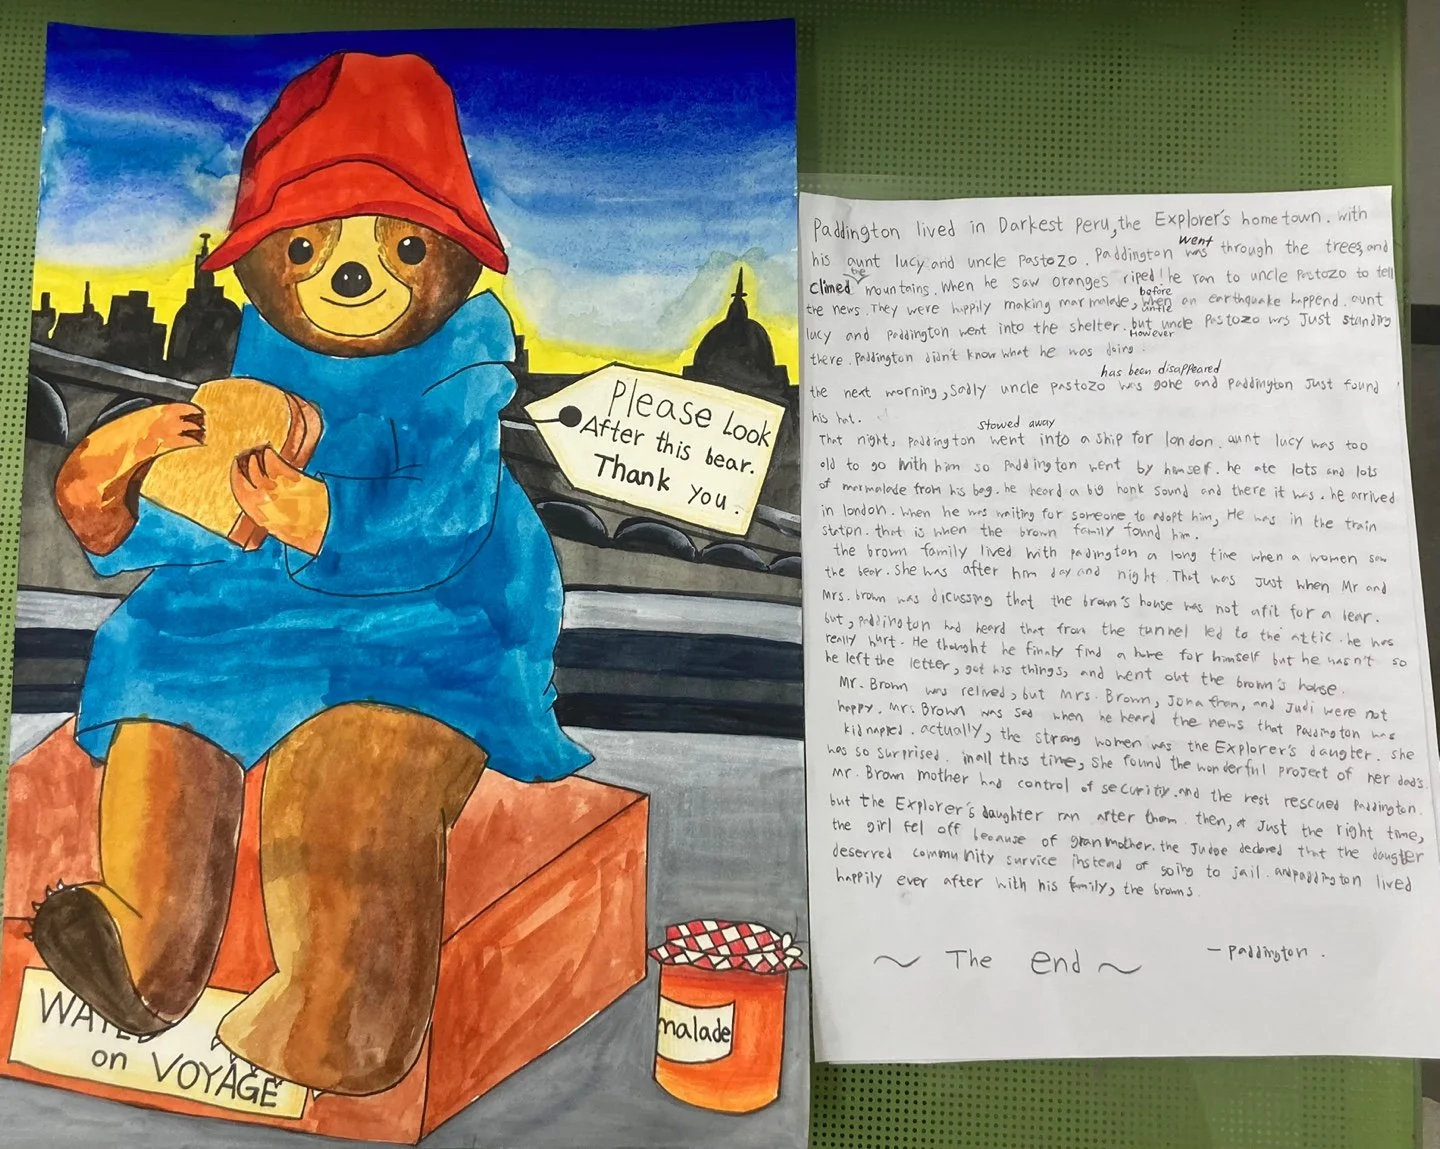 Please Look
After this bear.
Thank you.
WA
on VOYAGE
malade
Paddington lived in Darkest Peru, the Explorer's home town. with
went
his aunt lucy and uncle Pastozo. Paddington was through the trees, and
the
climed mountains. When he saw oranges riped! he ran to uncle Pastozo to tell
before
the news. They were happily making marmalade, when an earthquake happend. aunt
lucy and Paddington went into the shelter. but uncle Pastozo was Just standing
However
there. Paddington didn't know what he was doing.
has been disappeared
the next morning, Sadly uncle Pastozo was gone and Paddington Just found
his hat.
stowed away
That night, Paddington went into a ship for london. aunt lucy was too
old to go with him so Paddington went by himself. he ate lots and lots
of marmalade from his bag. he heard a big honk sound and there it was. he arrived
in london. When he was waiting for someone to adopt him, He was in the train
staton. that is when the brown family found him.
the brown family lived with padington a long time when a women saw
the bear. She was after him day and night. That was Just when Mr and
Mrs. brown was dicussing that the brown's house was not afit for a bear.
but, Paddington had heard that from the tunnel led to the attic. he was
really hurt. He thought he finaly find a home for himself but he hasn't so
he left the letter, got his things, and went out the brown's house.
Mr. Brown was relived, but Mrs. Brown, Jonathan, and Judi were not
happy. Mr. Brown was sad when he heard the news that Paddington was
kidnaped. actually, the strong women was the Explorer's daugter. she
was so surprised. inall this time, She found the wonderful project of her dad's.
Mr. Brown mother had control of security. and the rest rescued Paddington.
but the Explorer's daughter ran after them. then, at Just the right time,
the girl fel off because of granmother. the Judge declared that the daugter
deserred community survice instead of going to jail. and paddington lived
happily ever after with his family, the browns.
~ The end ~
- Paddington.